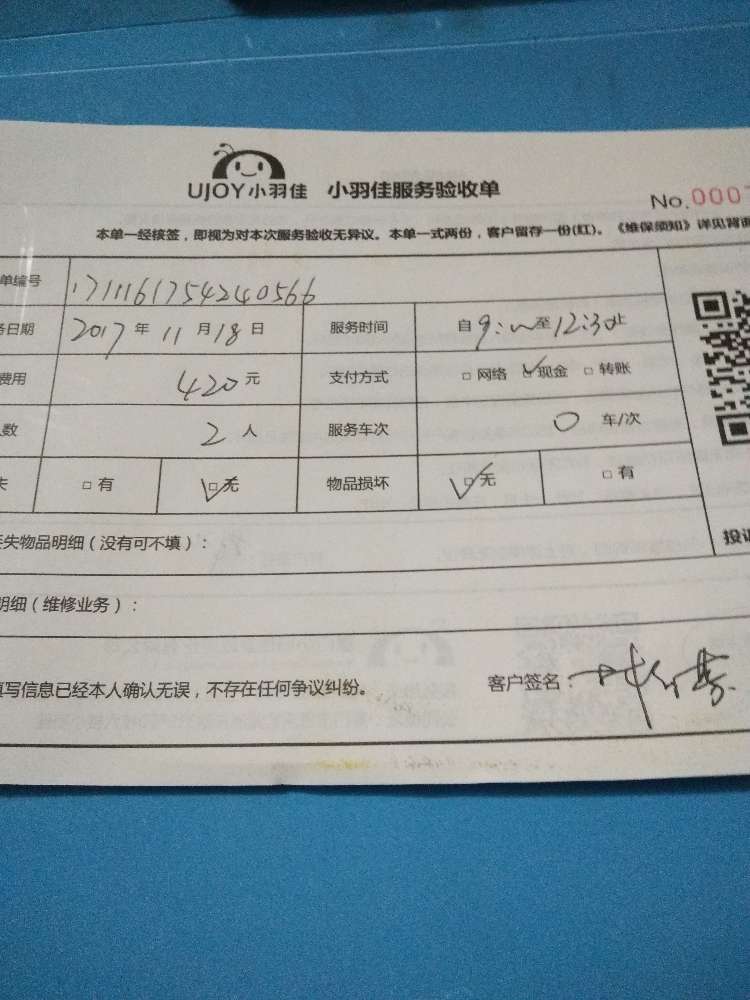 UJOY小羽佳 小羽佳服务验收单
No.000
本单一经核签，即视为对本次服务验收无异议。本单一式两份，客户留存一份(红)。《维保须知》详见背面
单编号 1711161754240566
务日期 2017年11月18日 服务时间 自9:00至12:30止
费用 420元 支付方式 □网络 ☑现金 □转账
人数 2人 服务车次 0车/次
卡 □有 ☑无 物品损坏 ☑无 □有
丢失物品明细（没有可不填）： 投诉
明细（维修业务）：
填写信息已经本人确认无误，不存在任何争议纠纷。 客户签名：